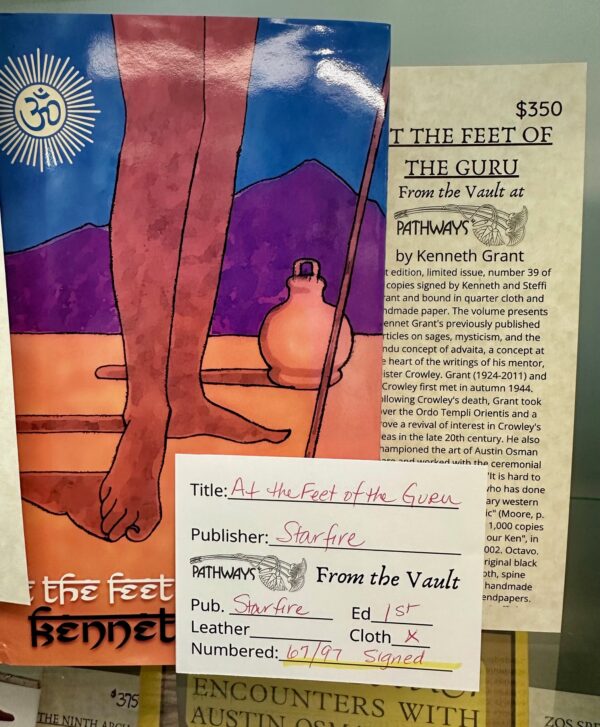 ॐ
$350
T THE FEET OF
THE GURU
From the Vault at
PATHWAYS
by Kenneth Grant
t edition, limited issue, number 39 of
copies signed by Kenneth and Steffi
rant and bound in quarter cloth and
ndmade paper. The volume presents
ennet Grant's previously published
rticles on sages, mysticism, and the
ndu concept of advaita, a concept at
e heart of the writings of his mentor,
ister Crowley. Grant (1924-2011) and
Crowley first met in autumn 1944.
llowing Crowley's death, Grant took
ver the Ordo Templi Orientis and a
ove a revival of interest in Crowley's
eas in the late 20th century. He also
hampioned the art of Austin Osman
and worked with the ceremonial
"It is hard to
who has done
ary western
ic" (Moore, p.
1,000 copies
our Ken", in
002. Octavo.
riginal black
oth, spine
handmade
endpapers.
the feet
kennet
Title: At the Feet of the Guru
Publisher: Starfire
PATHWAYS From the Vault
Pub. Starfire Ed 1st
Leather Cloth X
Numbered: 67/97 Signed
$375
THE NINTH ARCH
ENCOUNTERS WITH
AUSTIN OSM
ZOS SPE